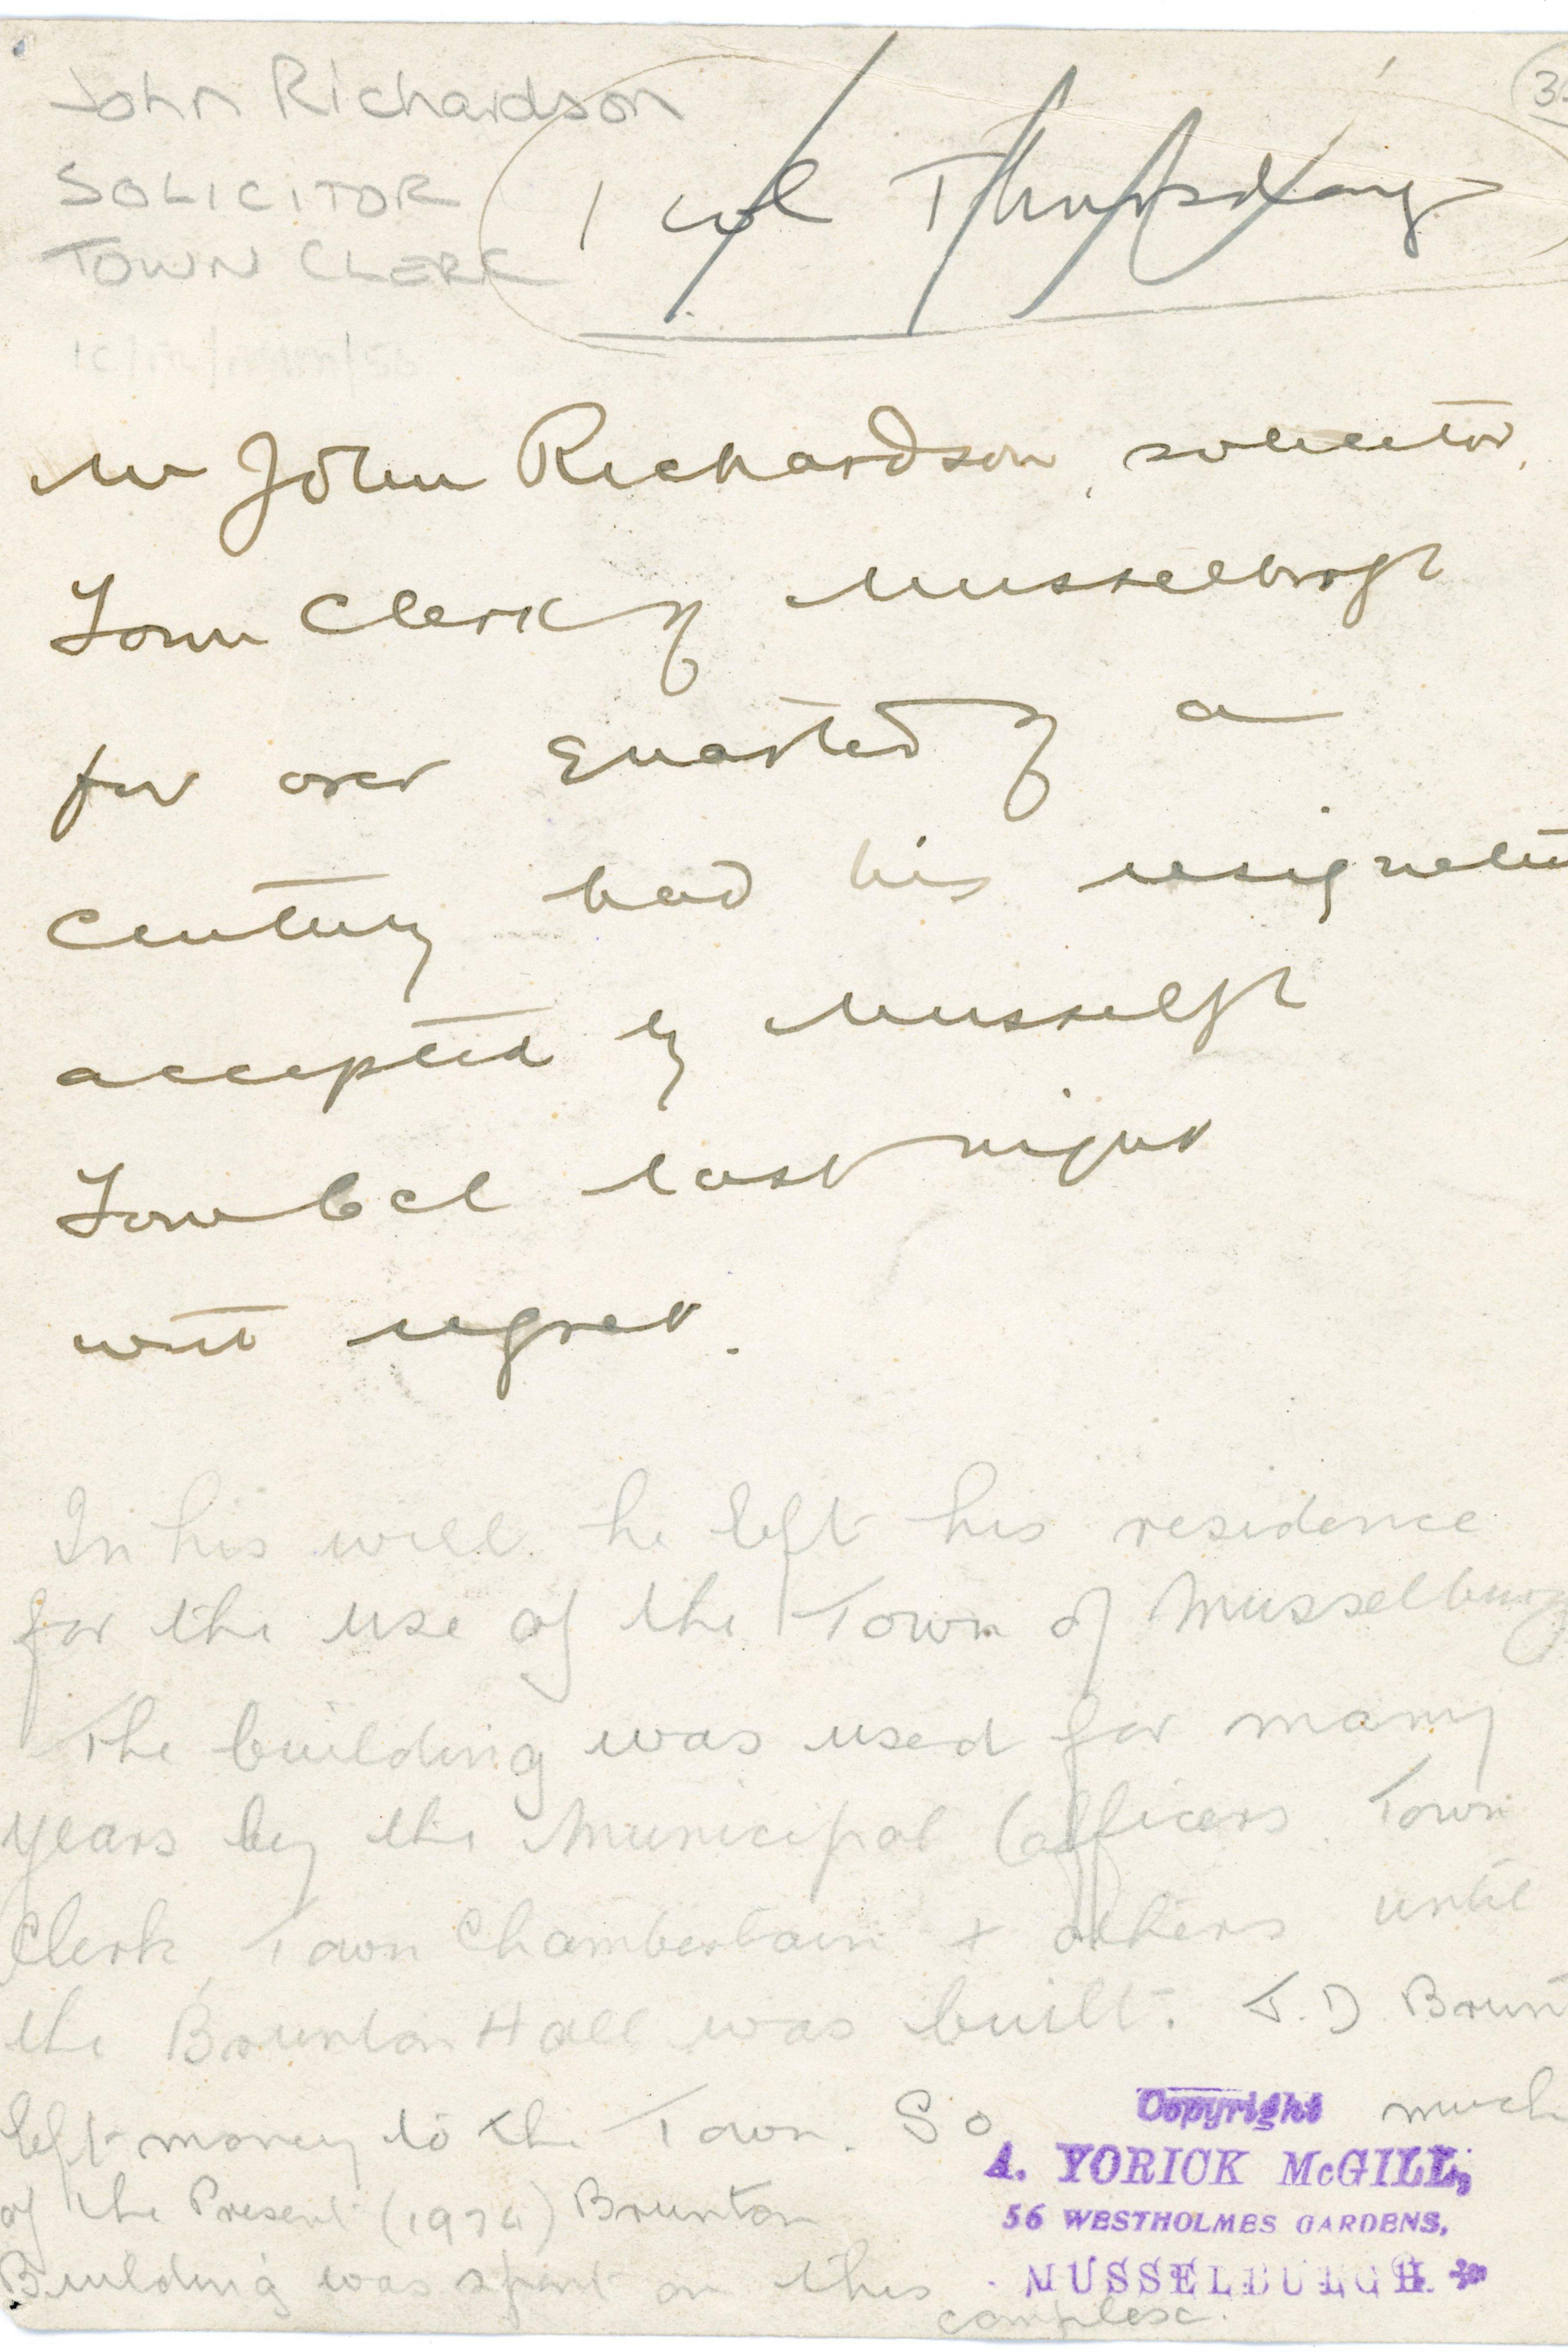 John Richardson
SOLICITOR
TOWN CLERK
1 col Thursday
Mr John Richardson, solicitor,
Town Clerk of Musselburgh
for over quarter of a
century had his
accepted by Musselbgh
Town Ccl last night
with regret.
In his will he left his residence
for the use of the Town of Musselburg
The building was used for many
years by the Municipal Officers. Town
Clerk, Town Chamberlain + others until
the Brunton Hall was built. J.D. Brunt
left money to the Town. So much
of the Present (1974) Brunton
Building was spent on this
complex.
Copyright
A. YORICK McGILL,
56 WESTHOLMES GARDENS,
MUSSELBURGH.